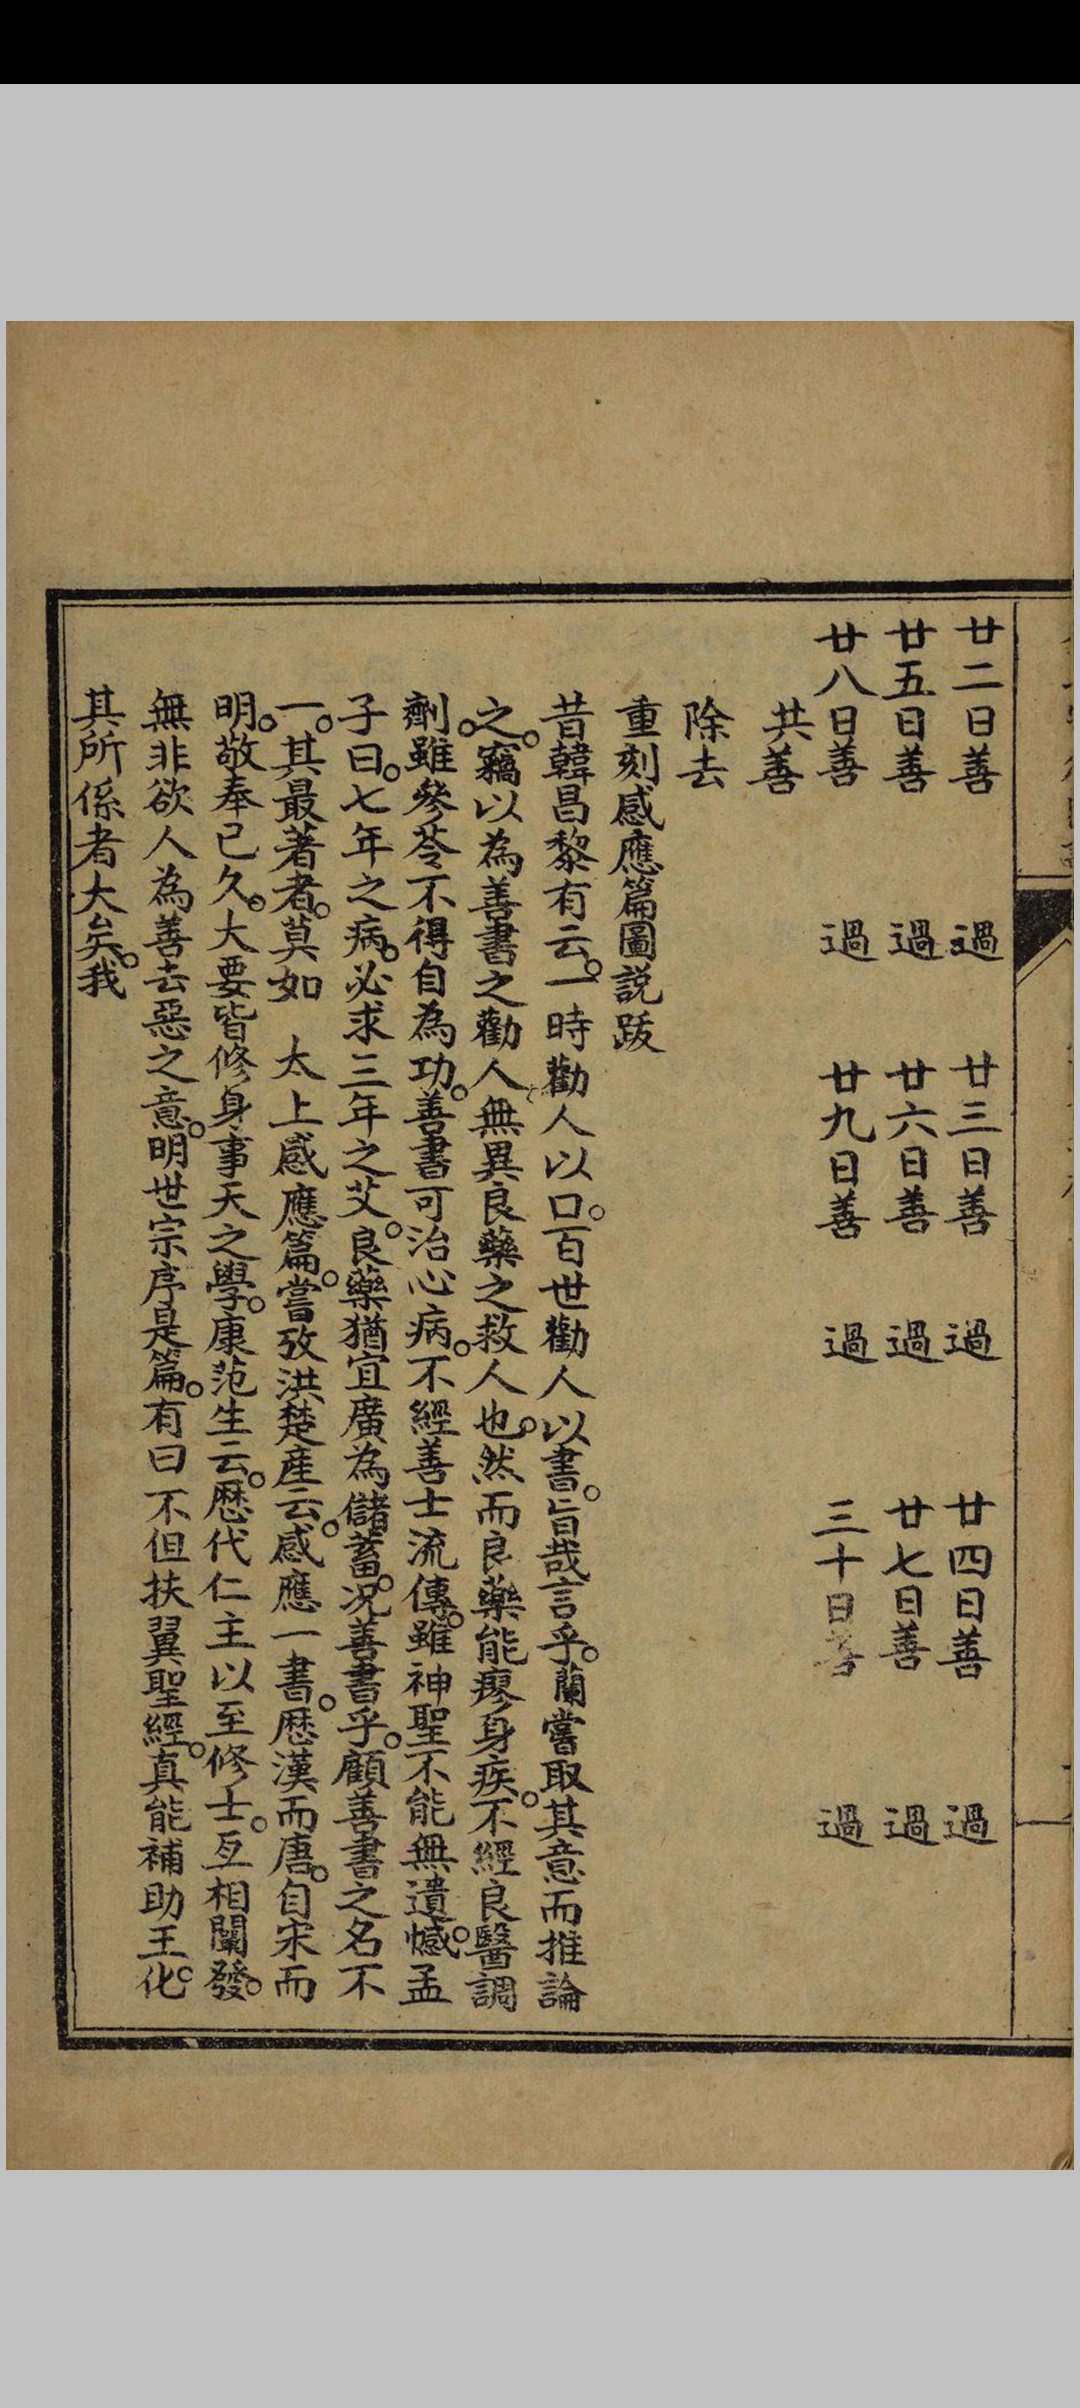 廿二日善 過 廿三日善 過 廿四日善 過
廿五日善 過 廿六日善 過 廿七日善 過
廿八日善 過 廿九日善 過 三十日善 過
共善
除去
重刻感應篇圖説跋
昔韓昌黎有云。一時勸人以口。百世勸人以書。旨哉言乎。蘭嘗取其意而推論
之。竊以為善書之勸人。無異良藥之救人也。然而良藥能瘳身疾。不經良醫調
劑。雖參苓不得自為功。善書可治心病。不經善士流傳。雖神聖不能無遺憾。孟
子曰。七年之病。必求三年之艾。良藥猶宜廣為儲蓄。況善書乎。顧善書之名不
一。其最著者。莫如 太上感應篇。嘗攷洪楚產云。感應一書。歴漢而唐。自宋而
明。敬奉已久。大要皆修身事天之學。康范生云。歴代仁主以至修士。互相闡發。
無非欲人為善去惡之意。明世宗序是篇。有曰不但扶翼聖經。真能補助王化。
其所係者大矣。我